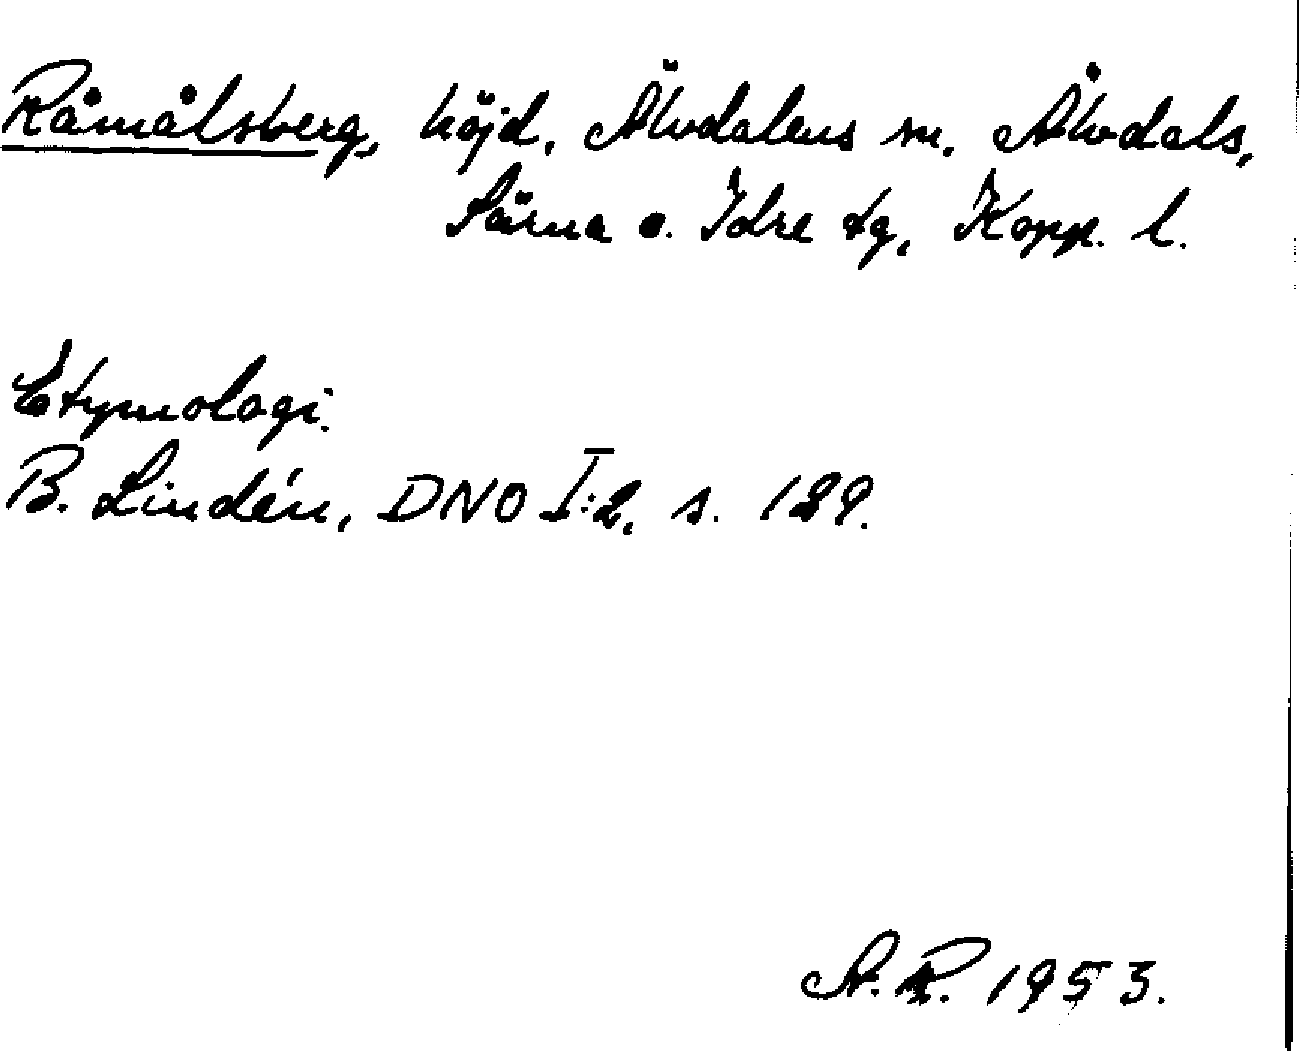 Råmålsberg, höjd, Älvdalens sn. Älvdals,
Särna o. Idre tg, Kopp. l.
Etymologi.
B. Lindén, DNO I:2, s. 189.
A. R. 1953.